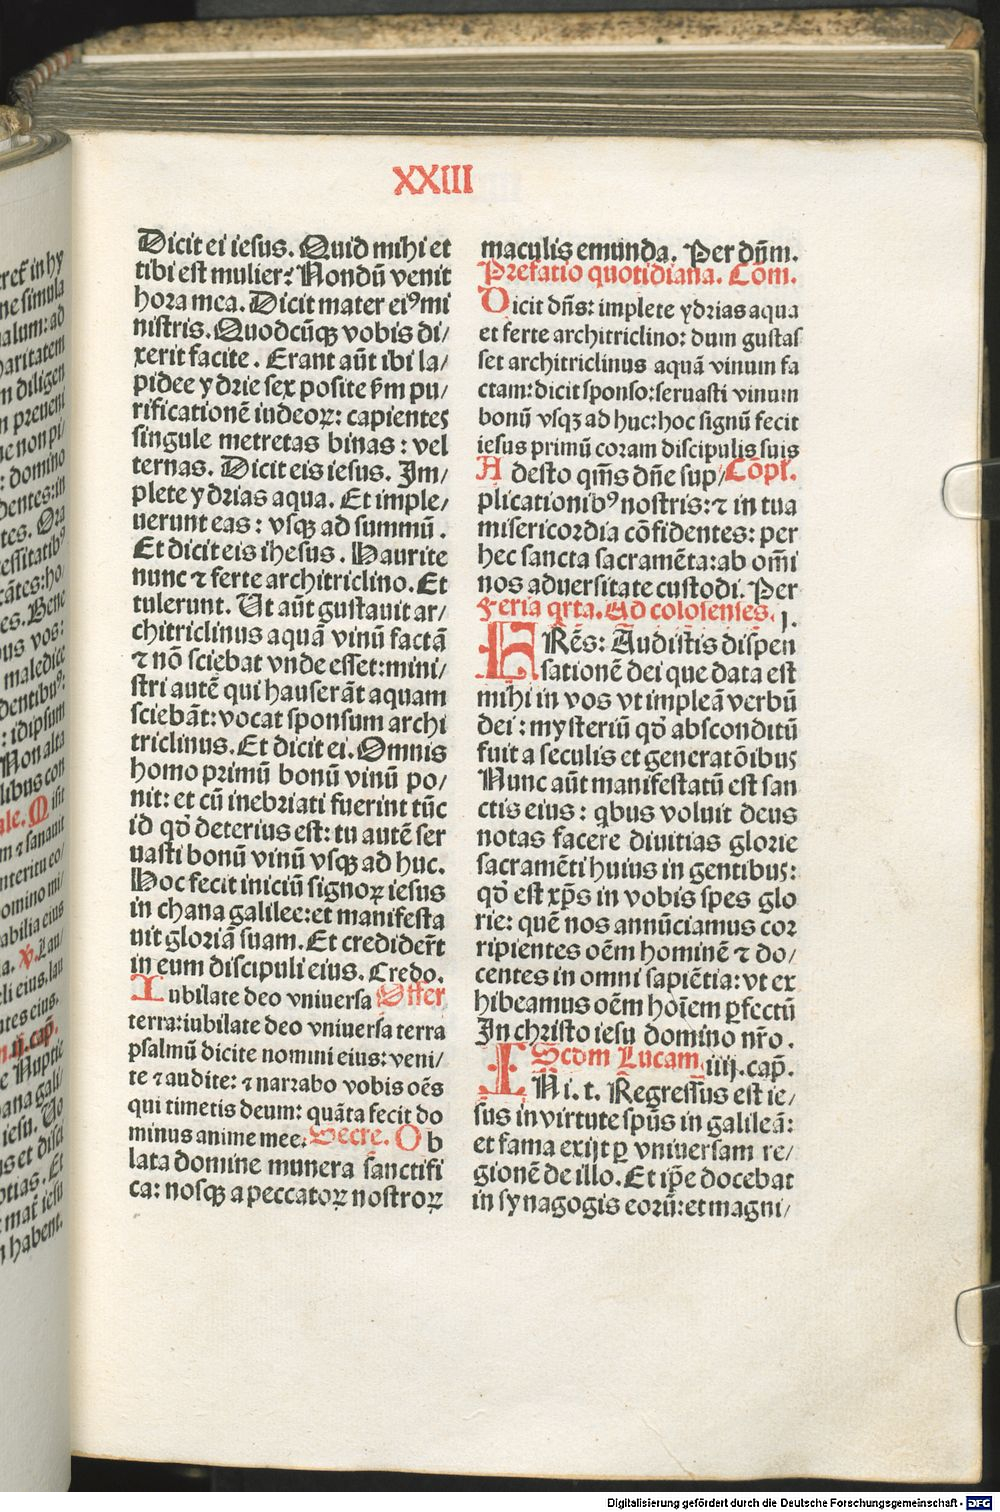 XXIII
Dicit ei iesus. Quid mihi et
tibi est mulier? Nondū venit
hora mea. Dicit mater eiꝰ mi
nistris. Quodcūqꝫ vobis di/
xerit facite. Erant aūt ibi la/
pidee ydrie sex posite ẜm pu/
rificationē iudeoꝝ: capientes
singule metretas binas: vel
ternas. Dicit eis iesus. Im/
plete ydrias aqua. Et imple/
uerunt eas: vsqꝫ ad summū.
Et dicit eis ihesus. Haurite
nunc ⁊ ferte architriclino. Et
tulerunt. Ut aūt gustauit ar/
chitriclinus aquā vinū factā
⁊ nō sciebat vnde esset: mini/
stri autē qui hauserāt aquam
sciebāt: vocat sponsum archi
triclinus. Et dicit ei. Omnis
homo primū bonū vinū po/
nit: et cū inebriati fuerint tūc
id qd̄ deterius est: tu autē ser
uasti bonū vinū vsqꝫ ad huc.
Hoc fecit iniciū signoꝝ iesus
in chana galilee: et manifesta
uit gloriā suam. Et credider̄t
in eum discipuli eius. Credo.
Iubilate deo vniuersa Offer
terra: iubilate deo vniuersa terra
psalmū dicite nomini eius: veni/
te ⁊ audite: ⁊ narrabo vobis oēs
qui timetis deum: quāta fecit do
minus anime mee. Secre. Ob
lata domine munera sanctifi
ca: nosqꝫ a peccatoꝝ nostroꝝ
maculis emunda. Per dn̄m.
Prefatio quotidiana. Com.
Dicit dn̄s: implete ydrias aqua
et ferte architriclino: dum gustas
set architriclinus aquā vinum fa
ctam: dicit sponso: seruasti vinum
bonū vsqꝫ ad huc: hoc signū fecit
iesus primū coram discipulis suis
Adesto qm̄s dn̄e sup/ Cōpl.
plicationibꝰ nostris: ⁊ in tua
misericordia cōfidentes: per
hec sancta sacramēta: ab om̄i
nos aduersitate custodi. Per
Feria qrta. Ad colosenses. j.
FRēs: Audistis dispen
sationē dei que data est
mihi in vos vt impleā verbū
dei: mysteriū qd̄ absconditū
fuit a seculis et generatōibus
Nunc aūt manifestatū est san
ctis eius: qbus voluit deus
notas facere diuitias glorie
sacramēti huius in gentibus:
qd̄ est xp̄s in vobis spes glo
rie: quē nos annūciamus cor
ripientes oēm hominē ⁊ do/
centes in omni sapiētia: vt ex
hibeamus oēm hoīem ꝑfectū
In christo iesu domino nr̄o.
Scd̄m Lucam. iiij. cap̄.
INi. t. Regressus est ie/
sus in virtute sp̄us in galileā:
et fama exijt ꝑ vniuersam re/
gionē de illo. Et ip̄e docebat
in synagogis eorū: et magni/
Digitalisierung gefördert durch die Deutsche Forschungsgemeinschaft - DFG